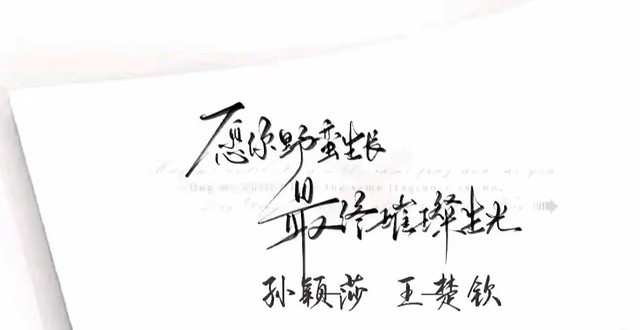 愿你野蛮生长
最终璀璨生光
孙颖莎 王楚钦